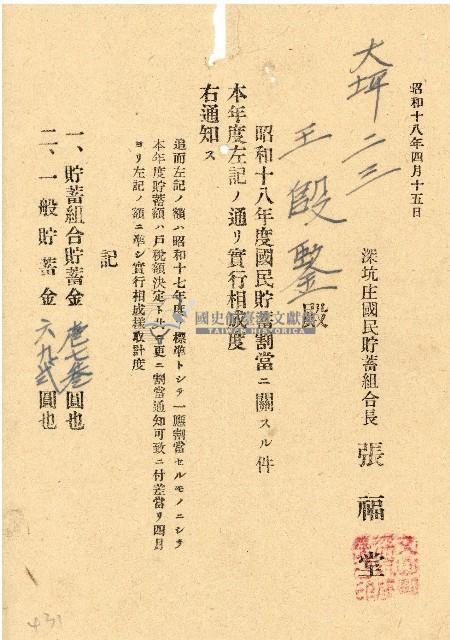 昭和十八年四月十五日
深坑庄國民貯蓄組合長 張福堂
大坪二三
王殿鑒殿
昭和十八年度國民貯蓄割當ニ關スル件
本年度左記ノ通リ實行相成度
右通知ス
追而左記ノ額ハ昭和十七年度ノ標準トシテ一應割當セルモノニシテ
本年度貯蓄額ハ戸稅額決定ト共ニ更ニ割當通知可致ニ付差當リ四月
ヨリ左記ノ額ニ準シ實行相成樣取計度
記
一、貯蓄組合貯蓄金 壱七叁圓也
二、一般貯蓄金 六九弍圓也
國史館臺灣文獻館
TAIWAN HISTORICA
431